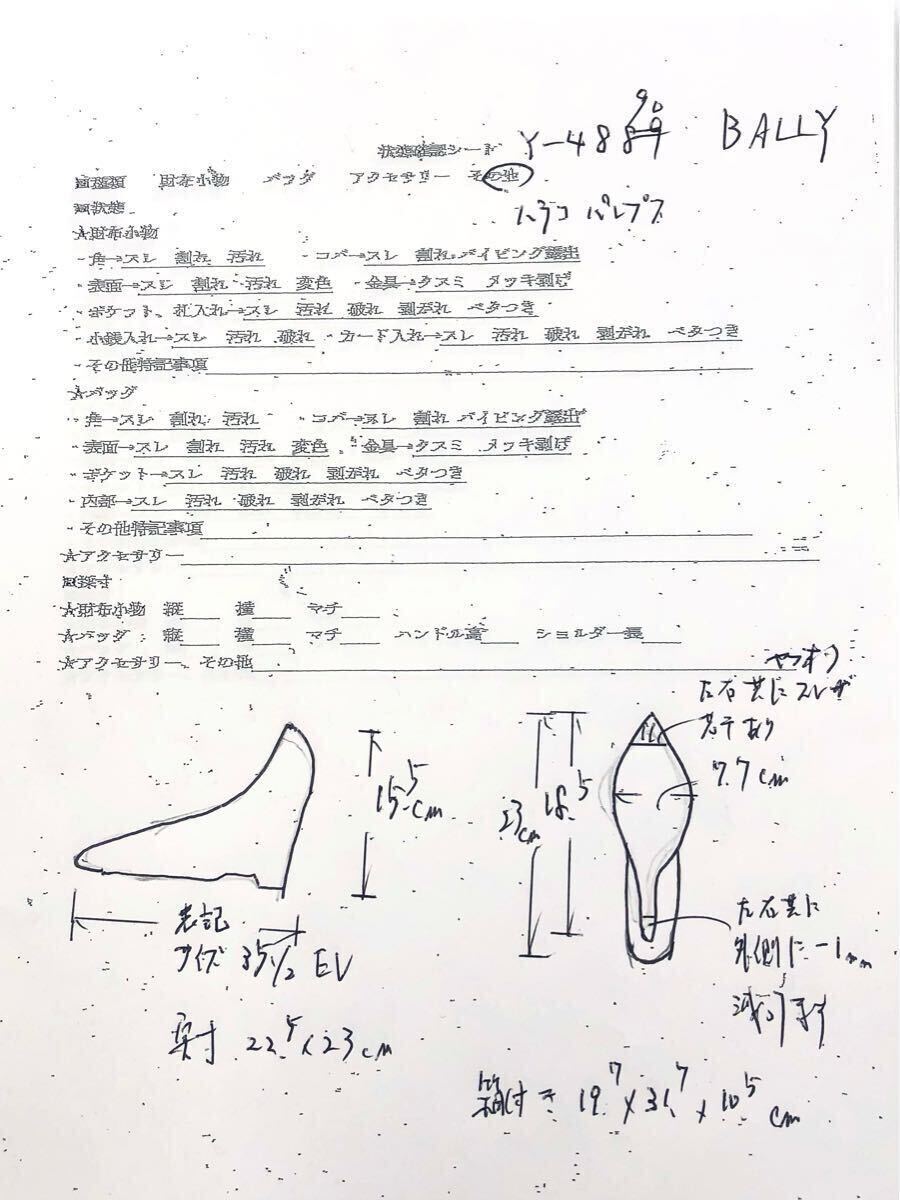 Y-4889 90 BALLY
状態確認シート
■種類 財布小物 バッグ アクセサリー その他
ハラコ パンプス
■状態
★財布小物
・角→スレ 割れ 汚れ ・コバ→スレ 割れ パイピング露出
・表面→スレ 割れ 汚れ 変色 ・金具→クスミ メッキ剥げ
・ポケット、札入れ→スレ 汚れ 破れ 剥がれ ベタつき
・小銭入れ→スレ 汚れ 破れ ・カード入れ→スレ 汚れ 破れ 剥がれ ベタつき
・その他特記事項
★バッグ
・角→スレ 割れ 汚れ ・コバ→スレ 割れ パイピング露出
・表面→スレ 割れ 汚れ 変色 ・金具→クスミ メッキ剥げ
・ポケット→スレ 汚れ 破れ 剥がれ ベタつき
・内部→スレ 汚れ 破れ 剥がれ ベタつき
・その他特記事項
★アクセサリー
■採寸
★財布小物 縦 横 マチ
★バッグ 縦 横 マチ ハンドル高 ショルダー長
★アクセサリー、その他
左右共にスレが
若干あり
15.5cm
23cm
18.5
7.7cm
表記
サイズ 35 1/2 EV
左右共に
外側に-1mm
減ります
実寸 22.5×23cm
箱付き 19.7×31.7×10.5cm